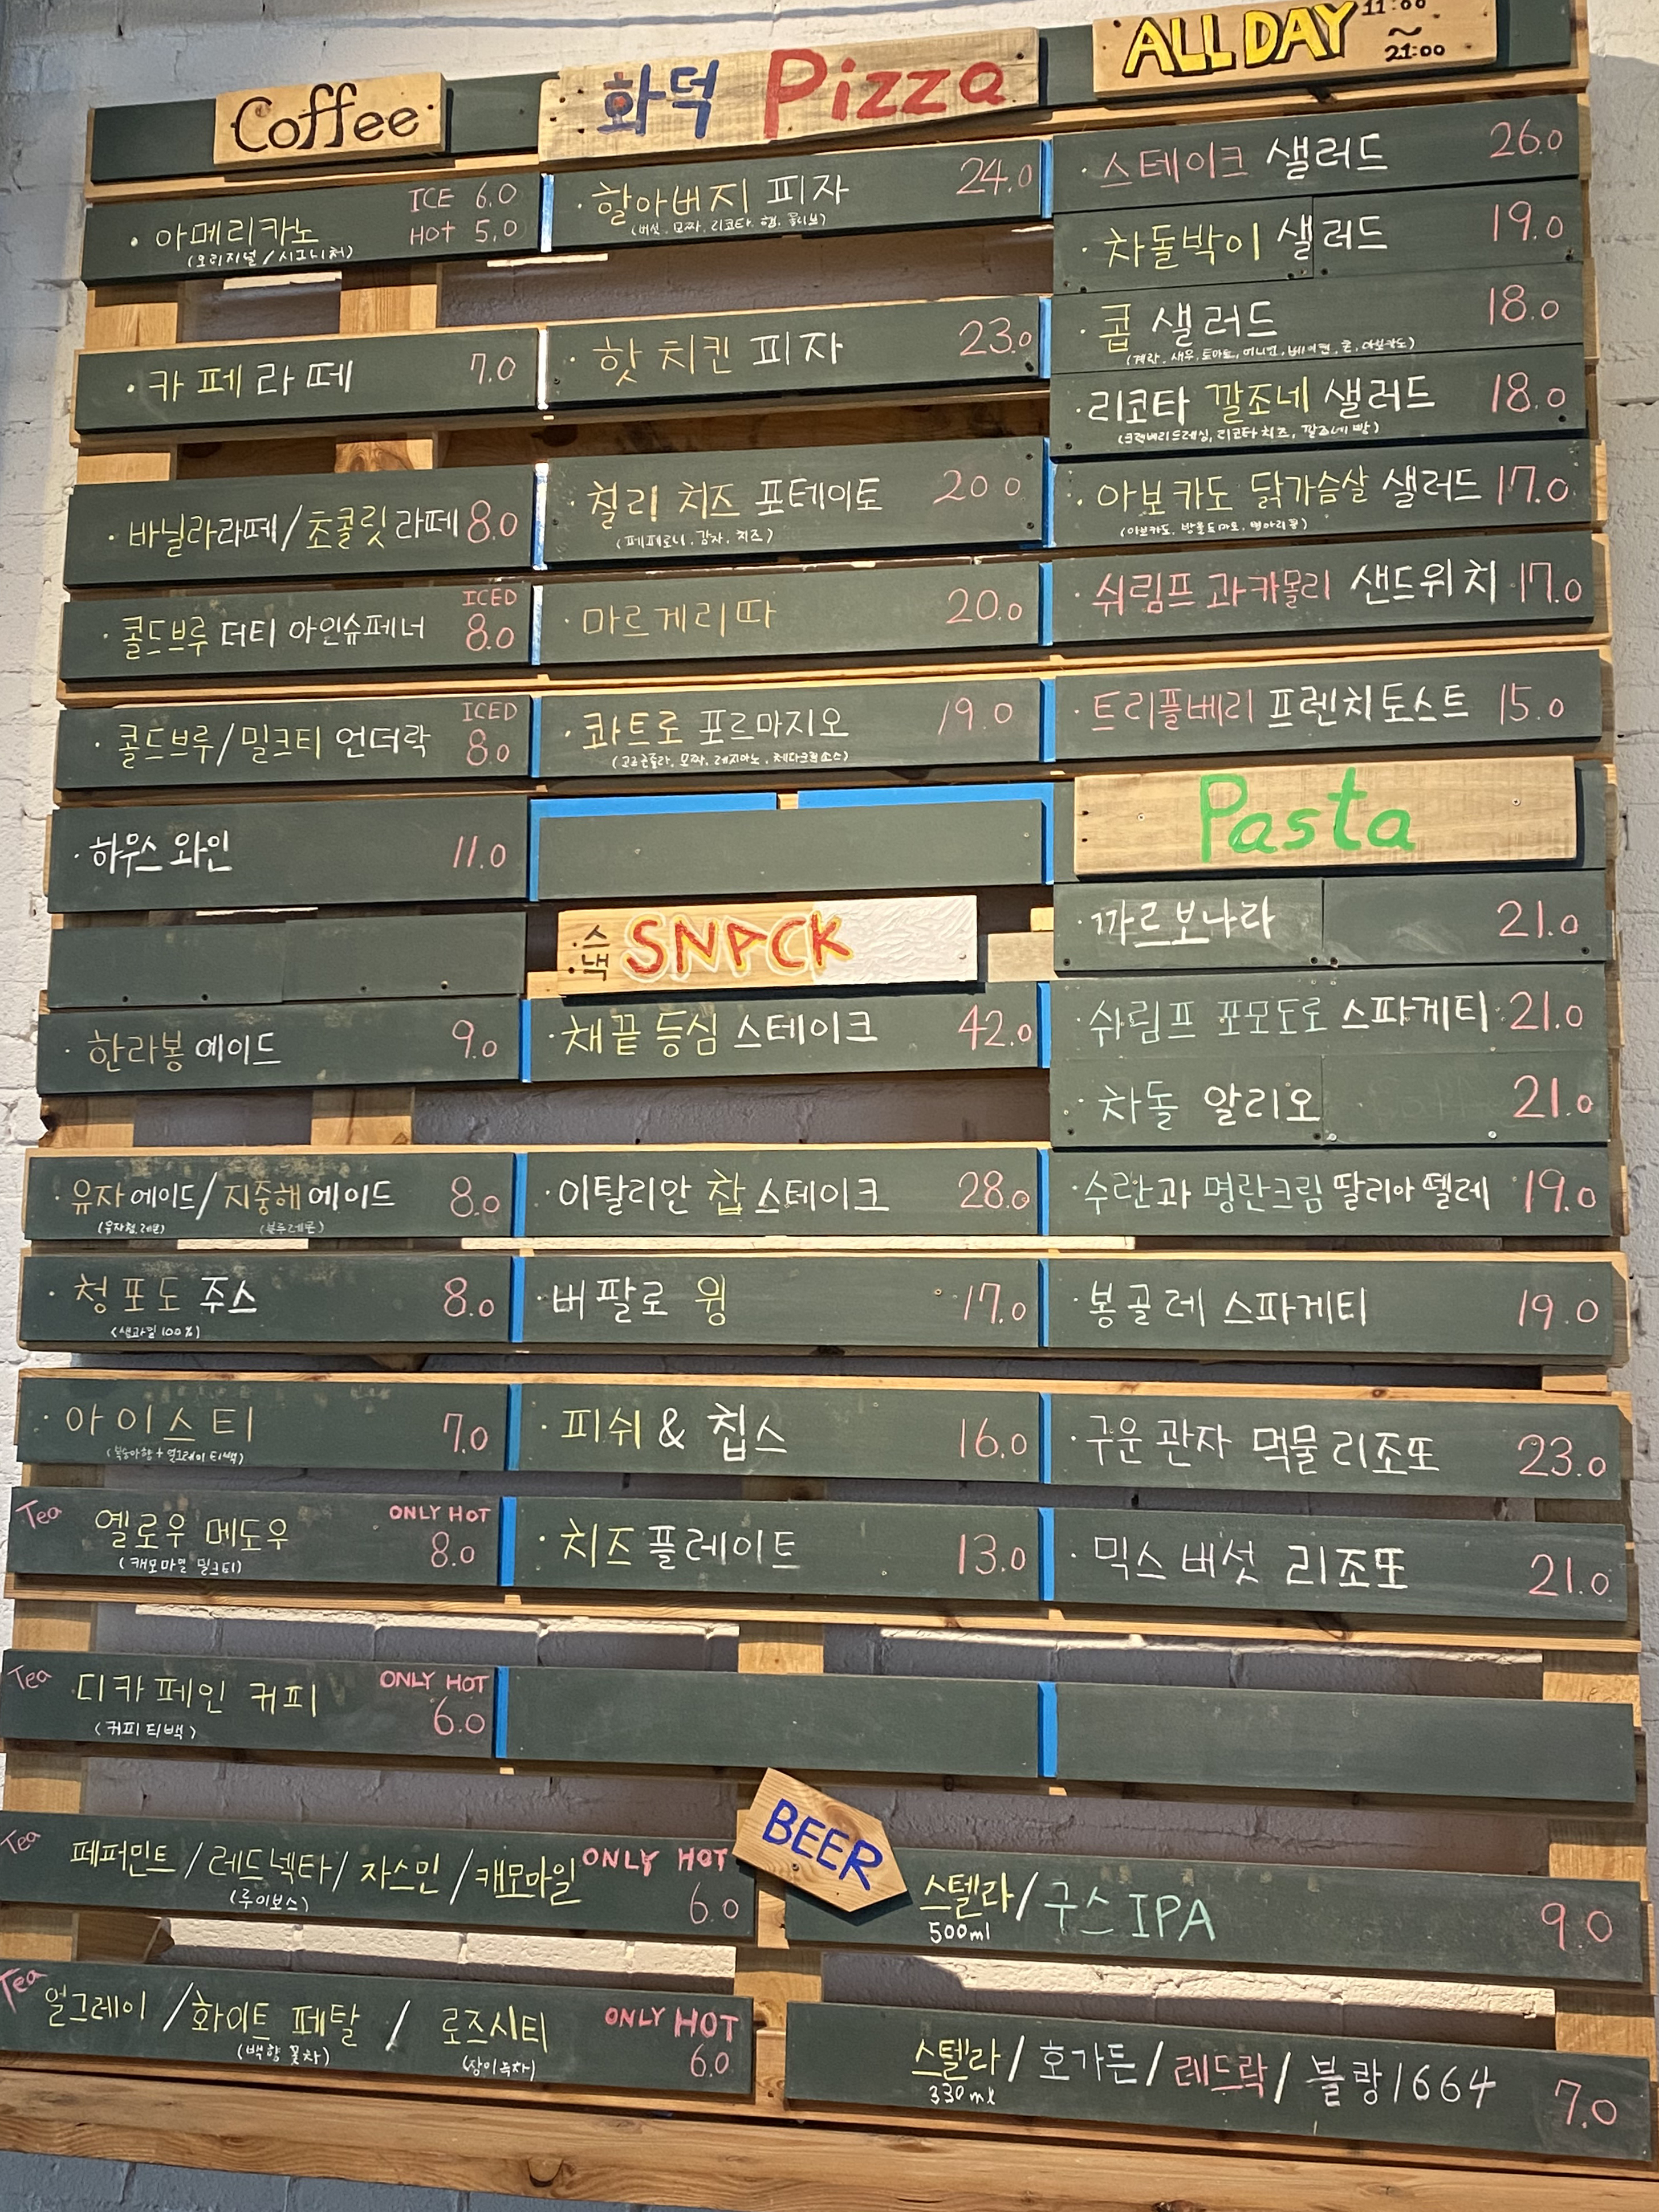 Coffee
· 아메리카노 ICE 6.0
HOT 5.0
(오리지널 / 시그니처)
· 카페라떼 7.0
· 바닐라라떼/초콜릿라떼 8.0
· 콜드브루 더티 아인슈페너 ICED 8.0
· 콜드브루/밀크티 언더락 ICED 8.0
· 하우스 와인 11.0
· 한라봉 에이드 9.0
· 유자에이드/지중해에이드 8.0
(유자청, 레몬)
· 청포도 주스 8.0
(생과일 100%)
· 아이스티 7.0
(복숭아향 + 얼그레이 티백)
Tea 옐로우 메도우 ONLY HOT 8.0
(캐모마일 밀크티)
Tea 디카페인 커피 ONLY HOT 6.0
(커피 티백)
Tea 페퍼민트 / 레드넥타 / 자스민 / 캐모마일 ONLY HOT 6.0
(루이보스)
Tea 얼그레이 / 화이트 페탈 / 로즈시티 ONLY HOT 6.0
(백향 꽃차) (장미녹차)
화덕 Pizza
· 할아버지 피자 24.0
(버섯, 모짜, 리코타, 햄, 올리브)
· 핫 치킨 피자 23.0
· 칠리 치즈 포테이토 20.0
(페페로니, 감자, 치즈)
· 마르게리따 20.0
· 콰트로 포르마지오 19.0
(고르곤졸라, 모짜, 레지아노, 체다크림소스)
스낵 SNACK
· 채끝 등심 스테이크 42.0
· 이탈리안 찹 스테이크 28.0
· 버팔로 윙 17.0
· 피쉬 & 칩스 16.0
· 치즈 플레이트 13.0
ALL DAY 11:00
~
21:00
· 스테이크 샐러드 26.0
· 차돌박이 샐러드 19.0
· 콥 샐러드 18.0
(계란, 새우, 토마토, 어니언, 베이컨, 콘, 아보카도)
· 리코타 깔조네 샐러드 18.0
(크랜베리드레싱, 리코타 치즈, 깔조네 빵)
· 아보카도 닭가슴살 샐러드 17.0
(아보카도, 방울토마토, 병아리콩)
· 쉬림프 과카몰리 샌드위치 17.0
· 트리플베리 프렌치토스트 15.0
Pasta
· 까르보나라 21.0
· 쉬림프 포모도로 스파게티 21.0
· 차돌 알리오 21.0
· 수란과 명란크림 딸리아뗄레 19.0
· 봉골레 스파게티 19.0
· 구운 관자 먹물 리조또 23.0
· 믹스 버섯 리조또 21.0
BEER
스텔라/구스 IPA 9.0
500ml
스텔라/호가든/레드락/블랑1664 7.0
330ml